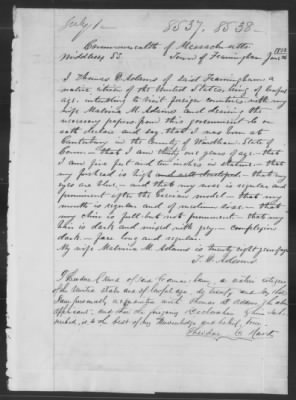 8537. 8538
Commonwealth of Massachusetts
Middlesex SS. Town of Framingham June
I Thomas D. Adams of said Framingham a
native citizen of the United States, being of lawful
age, intending to visit foreign countries, with my
wife Malvina M. Adams and desiring the
necessary papers from this government do on
oath declare and say, that I was born at
Canterbury in the County of Windham, State of
Conn – that I am thirty one years of age – that I
am five feet and ten inches in stature – that
my forehead is high and well developed – that my
eyes are blue – and that my nose is regular and
prominent after the Grecian model – that my
mouth is regular and of medium size – that
my chin is full but not prominent – that my
hair is dark and mixed with grey – complexion
dark – face long and regular
My wife Malvina M. Adams is twenty eight years of age
T. D. Adams
I Theodore C. Hurd of said Framingham, a native citizen
of the United States and of lawful age, do testify and say that
I am personally acquainted with Thomas D. Adams the above
applicant, and that the foregoing declaration by him sub-
scribed, is to the best of my knowledge and belief, true.
Theodore C. Hurd